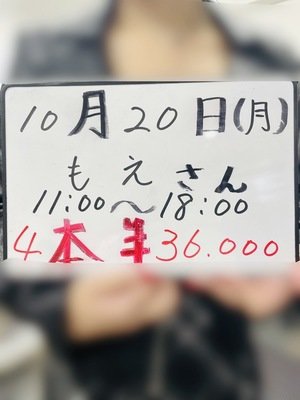 10月20日(月)
もえさん
11:00〜18:00
4本半36.000